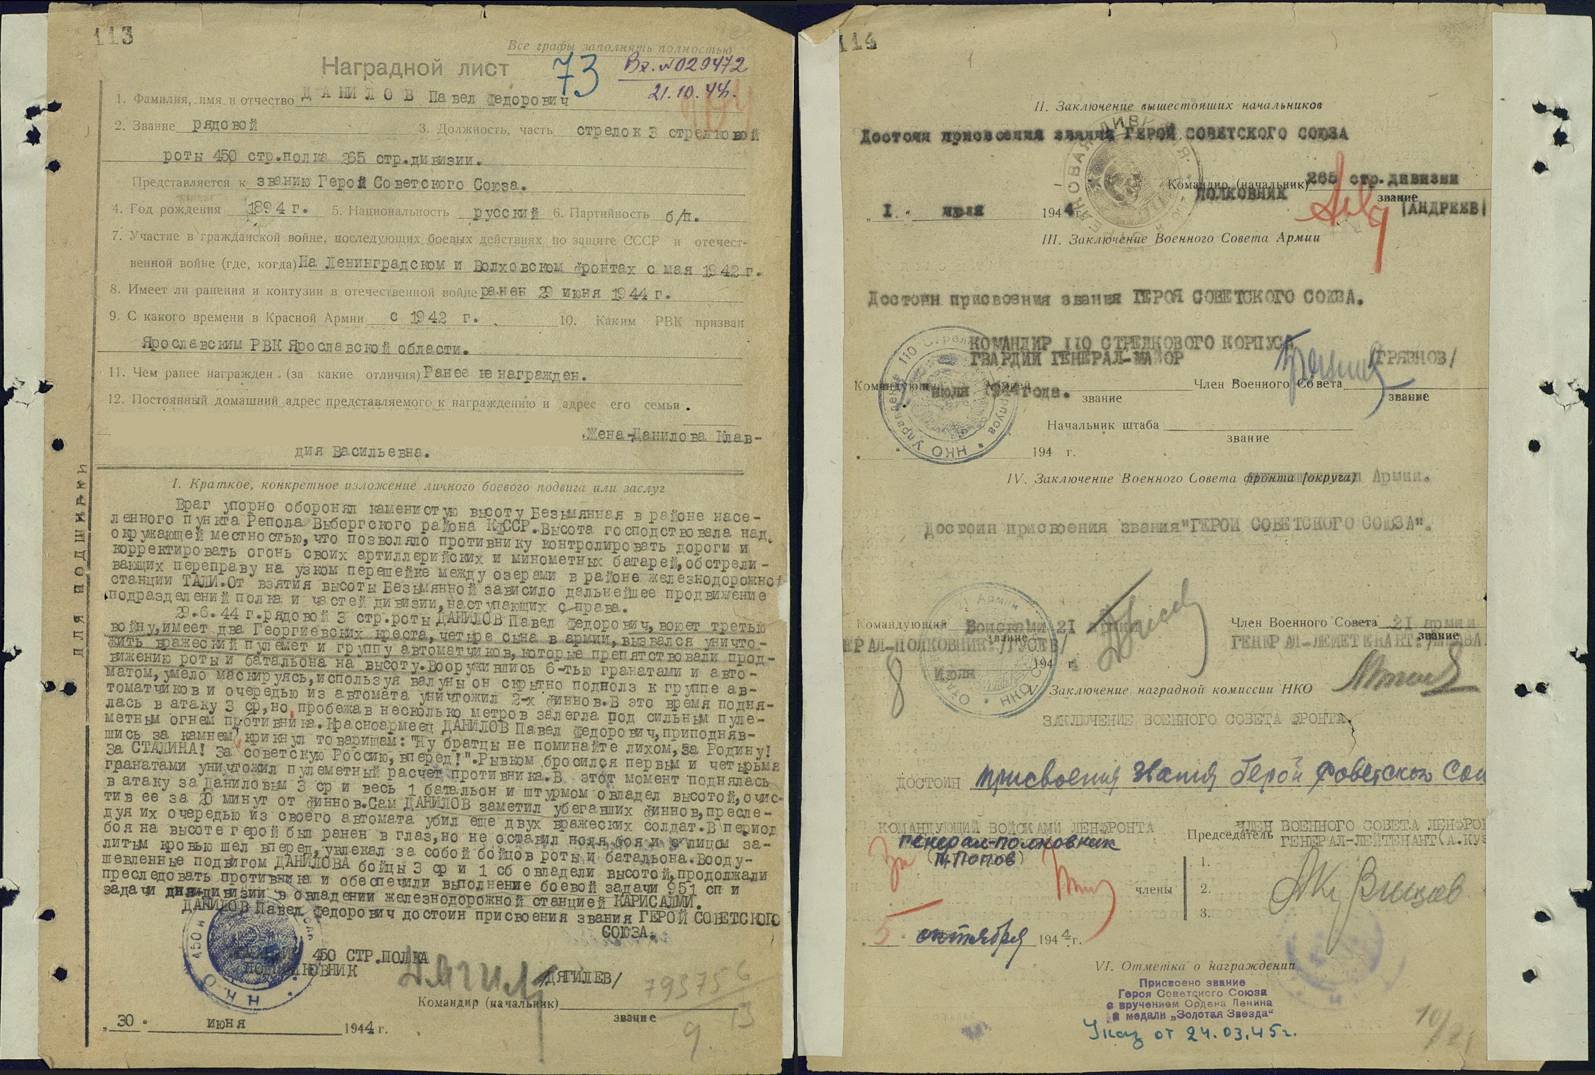 113
Все графы заполнять полностью
Наградной лист
73
Вх. №029472
21.10.44г.
1. Фамилия, имя и отчество ДАНИЛОВ Павел Федорович
2. Звание рядовой 3. Должность, часть стрелок 3 стрелковой
роты 450 стр.полка 265 стр.дивизии.
Представляется к званию Герой Советского Союза.
4. Год рождения 1894 г. 5. Национальность русский 6. Партийность б/п.
7. Участие в гражданской войне, последующих боевых действиях по защите СССР и отечест-
венной войне (где, когда) На Ленинградском и Волховском фронтах с мая 1942 г.
8. Имеет ли ранения и контузии в отечественной войне ранен 29 июня 1944 г.
9. С какого времени в Красной Армии с 1942 г. 10. Каким РВК призван
Ярославским РВК Ярославской области.
11. Чем ранее награжден (за какие отличия) Ранее не награжден.
12. Постоянный домашний адрес представляемого к награждению и адрес его семьи.
Жена-Данилова Клав-
дия Васильевна.
ДЛЯ ПОДШИВКИ
I. Краткое, конкретное изложение личного боевого подвига или заслуг
Враг упорно оборонял каменистую высоту Безымянная в районе насе-
ленного пункта Репола Выборгского района КФССР. Высота господствовала над
окружающей местностью, что позволяло противнику контролировать дороги и
корректировать огонь своих артиллерийских и минометных батарей, обстрели-
вающих переправу на узком перешейке между озерами в районе железнодорожной
станции ТАЛИ. От взятия высоты Безымянной зависило дальнейшее продвижение
подразделений полка и частей дивизии, наступающих справа.
29.6.44 г. рядовой 3 стр.роты ДАНИЛОВ Павел Федорович, воюет третью
войну, имеет два Георгиевских креста, четыре сына в армии, вызвался уничто-
жить вражеский пулемет и группу автоматчиков, которые препятствовали прод-
вижению роты и батальона на высоту. Вооружившись 6-тью гранатами и авто-
матом, умело маскируясь, используя валуны он скрытно подполз к группе ав-
томатчиков и очередью из автомата уничтожил 2-х финнов. В это время подня-
лась в атаку 3 ср, но, пробежав несколько метров залегла под сильным пуле-
метным огнем противника. Красноармеец ДАНИЛОВ Павел Федорович, приподняв-
шись за камнем, крикнул товарищам: "Ну братцы не поминайте лихом, за Родину!
За СТАЛИНА! За советскую Россию, вперед!". Рывком бросился первым и четырьмя
гранатами уничтожил пулеметный расчет противника. В этот момент поднялась
в атаку за Даниловым 3 ср и весь 1 батальон и штурмом овладел высотой, очис-
тив ее за 20 минут от финнов. Сам ДАНИЛОВ заметил убегавших финнов, пресле-
дуя их очередью из своего автомата убил еще двух вражеских солдат. В период
боя на высоте герой был ранен в глаз, но не оставил поля боя и с лицом за-
литым кровью шел вперед, увлекал за собой бойцов роты и батальона. Вооду-
шевленные подвигом ДАНИЛОВА бойцы 3 ср и 1 сб овладели высотой, продолжали
преследовать противника и обеспечили выполнение боевой задачи 951 сп и
задачи дня дивизии в овладении железнодорожной станцией КАРИСАЛМИ.
ДАНИЛОВ Павел Федорович достоин присвоения звания ГЕРОЙ СОВЕТСКОГО
СОЮЗА.
450 СТР.ПОЛКА
ПОДПОЛКОВНИК /ДЯГИЛЕВ/
Командир (начальник)
звание
Н.К.О
„30" июня 1944 г.
114
II. Заключение вышестоящих начальников
Достоин присвоения звания ГЕРОЙ СОВЕТСКОГО СОЮЗА
Командир (начальник) 265 стр.дивизии
ПОЛКОВНИК звание (АНДРЕЕВ)
„1" июля 1944 г.
III. Заключение Военного Совета Армии
Достоин присвоения звания ГЕРОЯ СОВЕТСКОГО СОЮЗА.
КОМАНДИР 110 СТРЕЛКОВОГО КОРПУСА
ГВАРДИИ ГЕНЕРАЛ-МАЙОР /ГРЯЗНОВ/
Командующий Член Военного Совета
июля 1944 года. звание звание
Начальник штаба
звание
194 г.
IV. Заключение Военного Совета фронта (округа) Армии.
Достоин присвоения звания "ГЕРОЙ СОВЕТСКОГО СОЮЗА".
Командующий Войсками 21 армии Член Военного Совета 21 армии
звание звание
8 июля 1944 г.
Заключение наградной комиссии НКО
ЗАКЛЮЧЕНИЕ ВОЕННОГО СОВЕТА ФРОНТА.
ДОСТОИН присвоения звания Герой Советского Сою
КОМАНДУЮЩИЙ ВОЙСКАМИ ЛЕНФРОНТА ЧЛЕН ВОЕННОГО СОВЕТА ЛЕНФРОН
Председатель ГЕНЕРАЛ-ЛЕЙТЕНАНТ (А.КУЗ
За генерал-полковник
(М.Попов)
члены
1.
2.
3.
5. октября 1944 г.
VI. Отметка о награждении
Присвоено звание
Героя Советского Союза
с вручением Ордена Ленина
и медали „Золотая Звезда"
Указ от 24.03.45г.